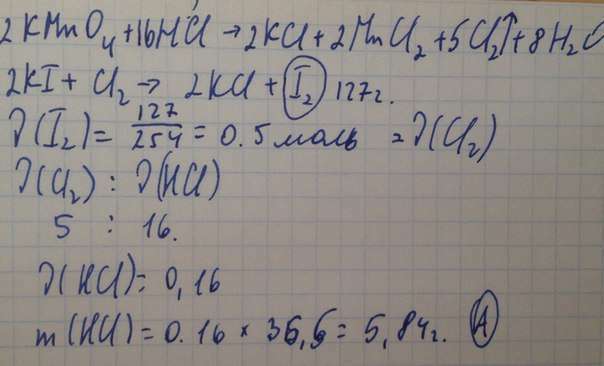 2KMnO₄+16HCl→2KCl+2MnCl₂+5Cl₂↑+8H₂O
2KI+Cl₂→2KCl+I₂ 127г.
ν(I₂)=127/254=0.5моль=ν(Cl₂)
ν(Cl₂):ν(HCl)
5 : 16.
ν(HCl)=0,16
m(HCl)=0.16×36,5=5,84г. А